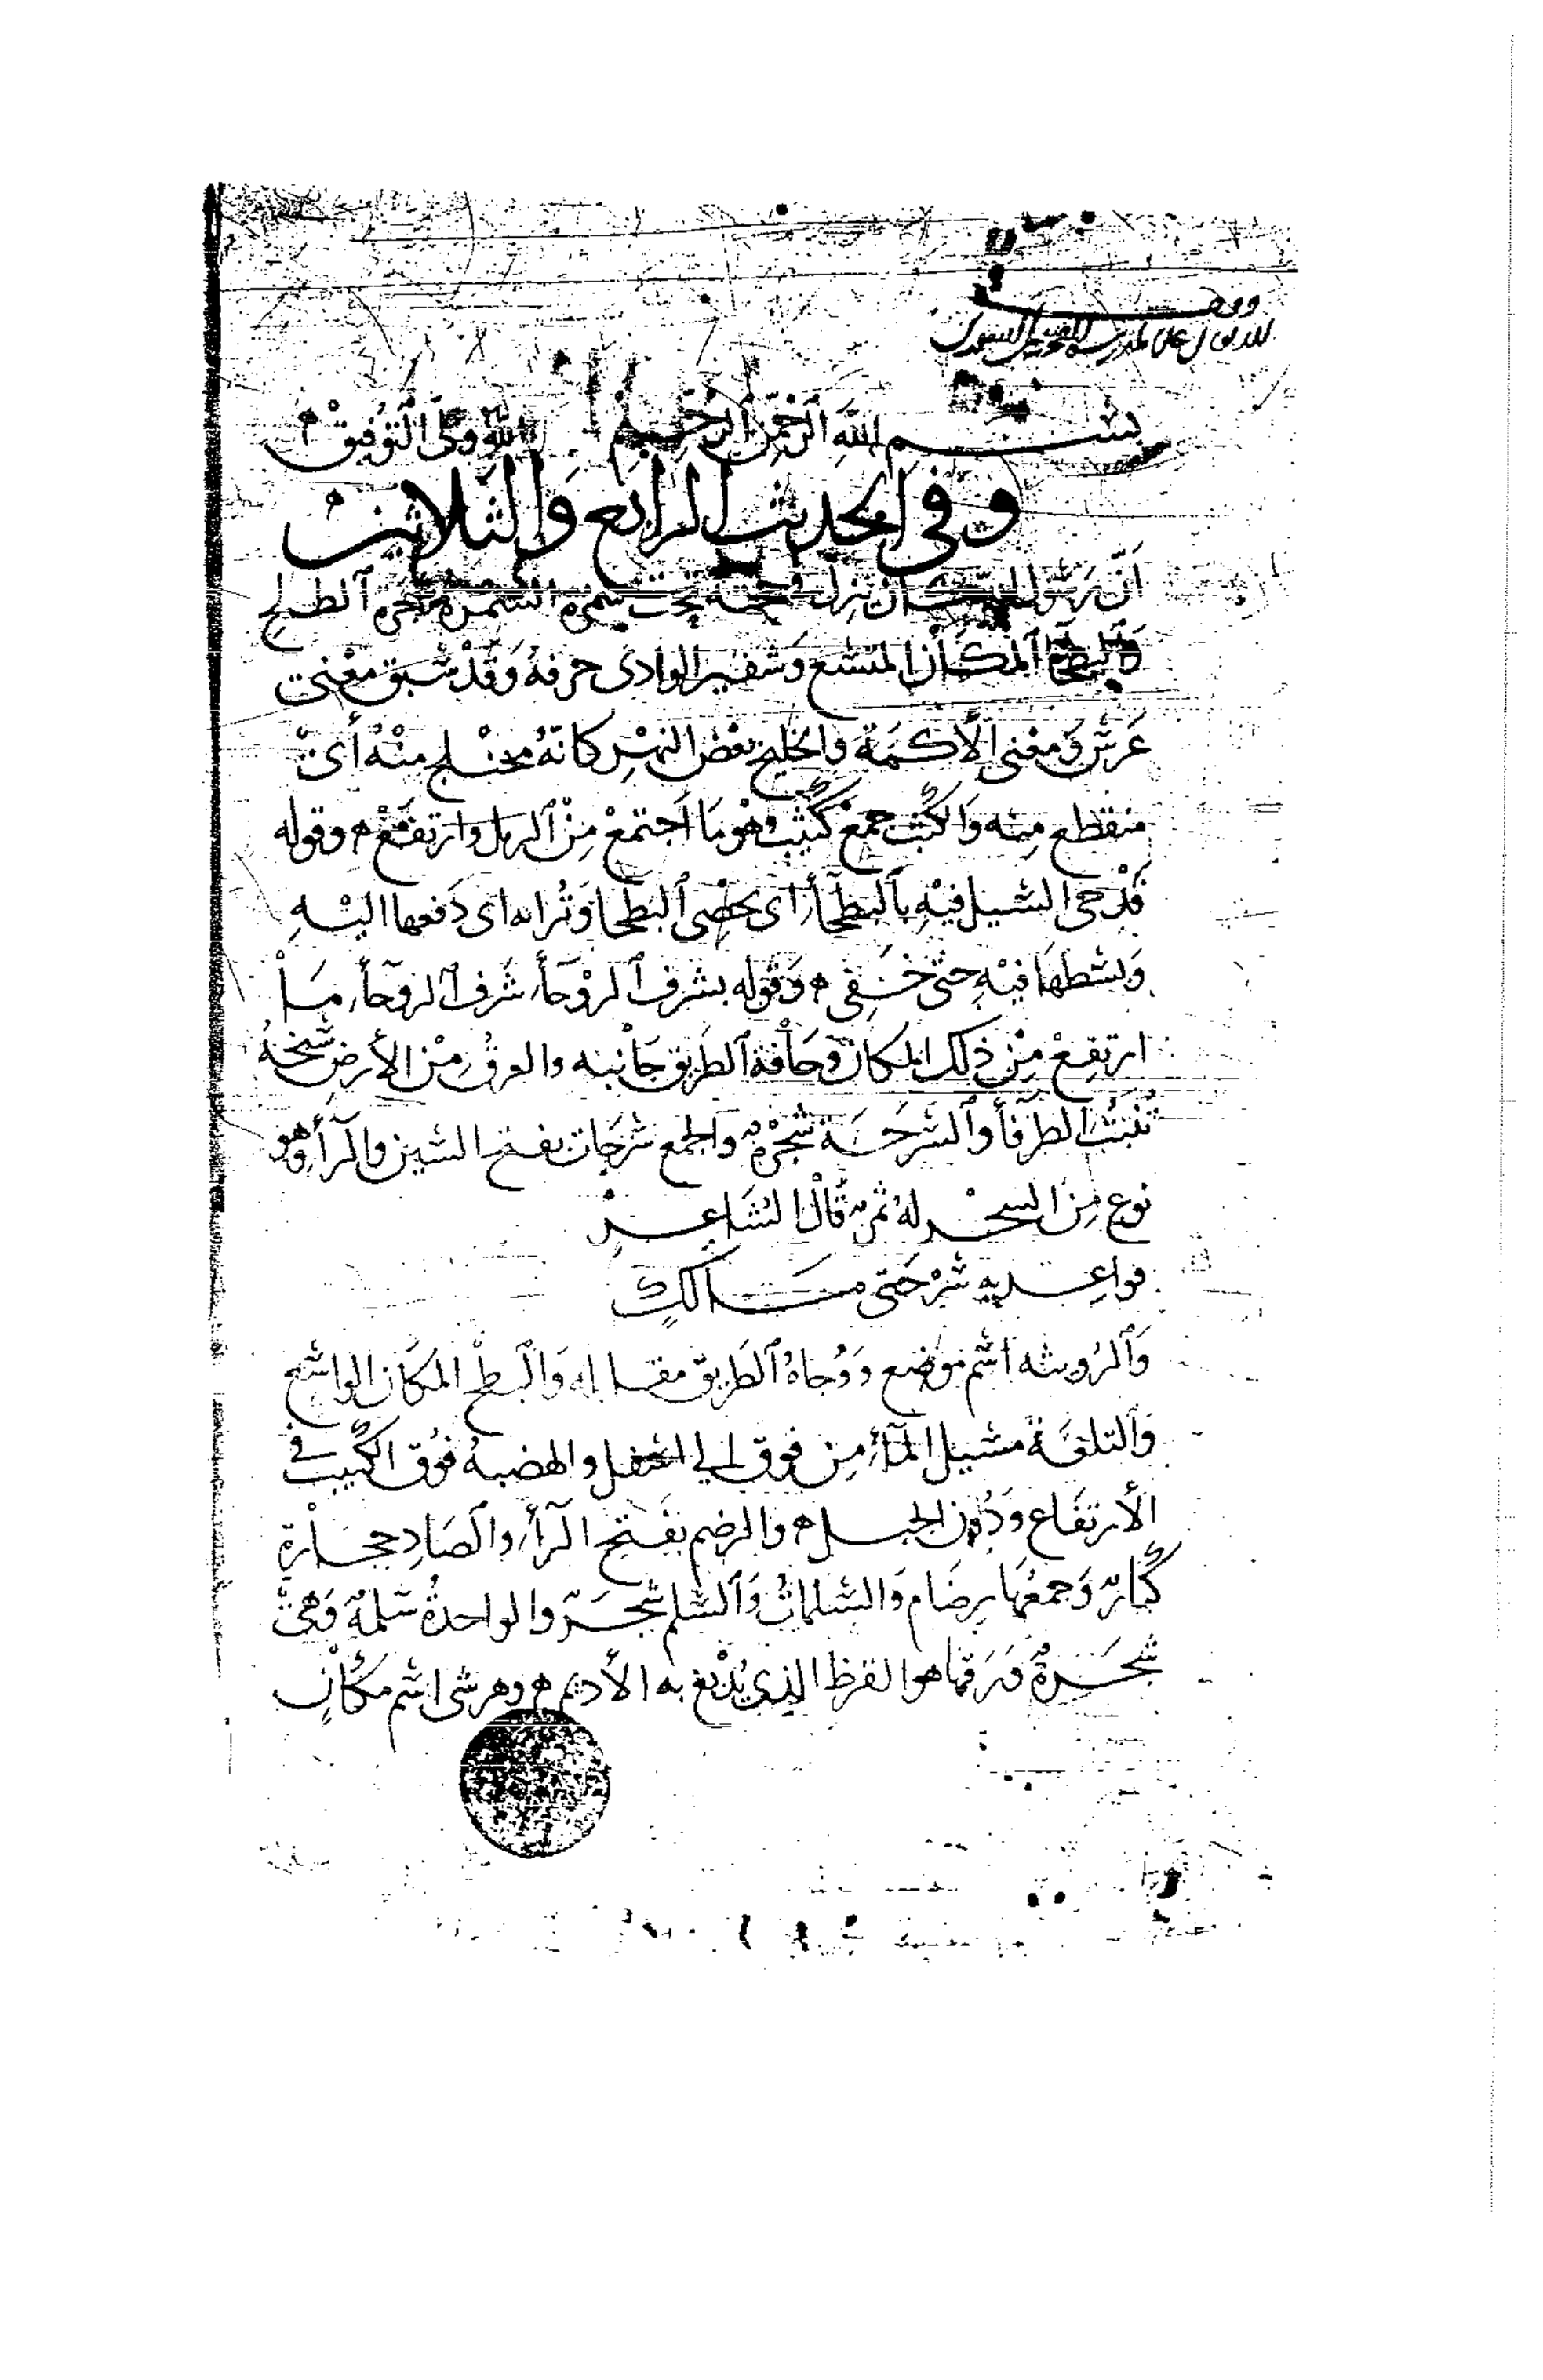 بسم الله الرحمن الرحيم الله ولي التوفيق
وفي الحديث الرابع والثلاثين
أن رسول الله كان ينزل في حجته تحت سمرة السمرة شجرة الطلح
والبطحا المكان المتسع وشفير الوادى حرفه وقد سبق معنى
عرس ومعنى الأكمة والخليج بعض النهر كانه مختلج منه أى
منقطع منه والكثب جمع كثيب وهو ما اجتمع من الرمل وارتفع ه وقوله
فدحى السيل فيه بالبطحآء اى بحصى البطحا وترابه اى دفعها اليه
وبسطها فيه حتى خفى ه وقوله بشرف الروحآء شرف الروحآء ما
ارتفع من ذلك المكان وحافة الطريق جانبه والعرق من الأرض سبخة
تنبت الطرفآء والسرحة شجرة والجمع سرحات بفتح السين والرآء وهو
نوع من الشجر له ثمر قال الشاعر
فواعديه سرحتى مالك
والرويثه اسم موضع ووجاه الطريق مقابله والبطح المكان الواسع
والتلعة مسيل المآء من فوق الي اسفل والهضبة فوق الكثيب في
الأرتفاع ودون الجبل ه والرضم بفتح الرآء والضاد حجارة
كبار وجمعها رضام والسلمات والسلم شجر والواحدة سلمة وهى
شجرة ورقها هو القرظ الذي يدبغ به الأديم ه وهرشى اسم مكان